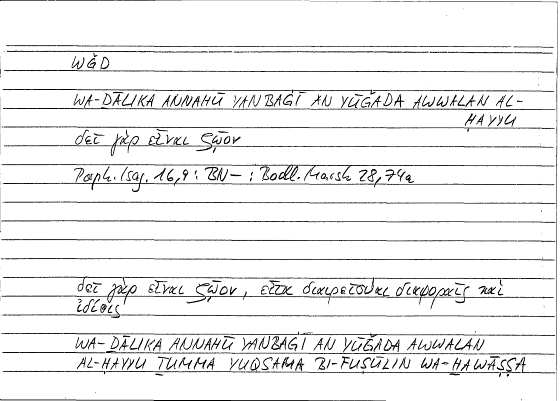 WĞD
WA-ḎĀLIKA ANNAHŪ YANBAĠĪ AN YŪĞADA AWWALAN AL-
ḤAYYU
δεῖ γὰρ εἶναι ζῷον
Porph. Isag. 16,9 : BN– : Bodl. Marsh 28,74a
δεῖ γὰρ εἶναι ζῷον, εἶτα διαιρεῖσθαι διαφοραῖς καὶ
ἰδίοις
WA-ḎĀLIKA ANNAHŪ YANBAĠĪ AN YŪĞADA AWWALAN
AL-ḤAYYU ṮUMMA YUQSAMA BI-FUṢŪLIN WA-ḪAWĀṢṢA